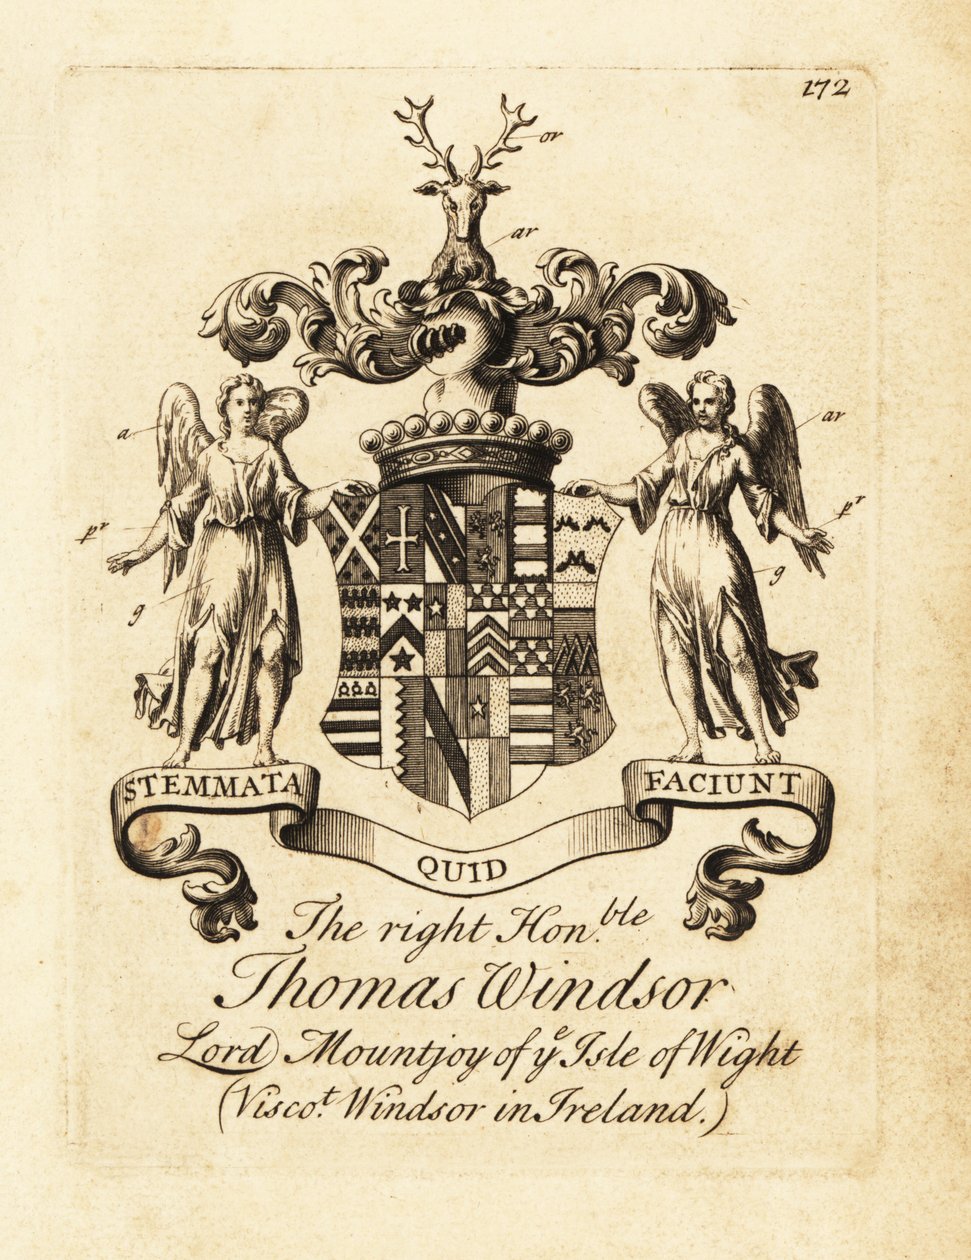 172
or
ar
a
ar
pr
pr
g
g
STEMMATA
FACIUNT
QUID
The right Hon.ble
Thomas Windsor
Lord Mountjoy of ye Isle of Wight
(Visco.t Windsor in Ireland.)